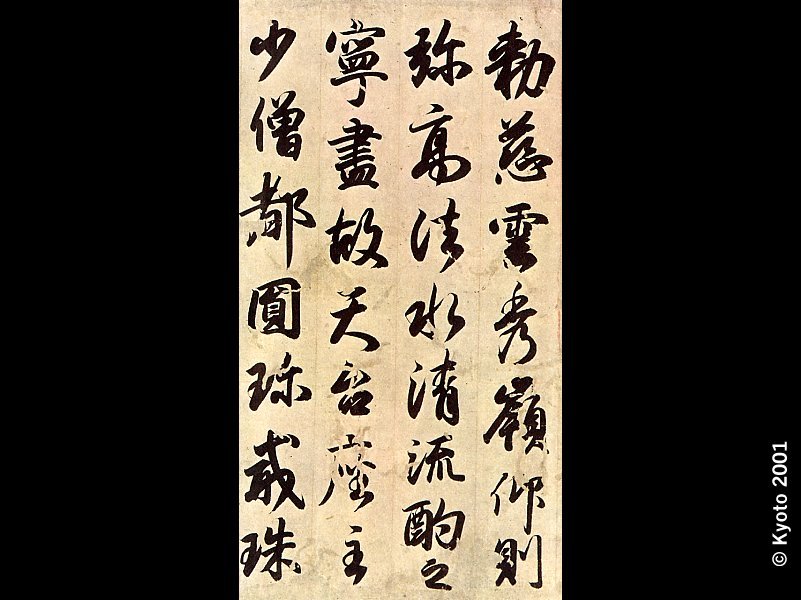 勅慈雲秀嶺仰則
弥高法水清流酌之
寧盡故天台座主
少僧都圓珎戒珠
© Kyoto 2001